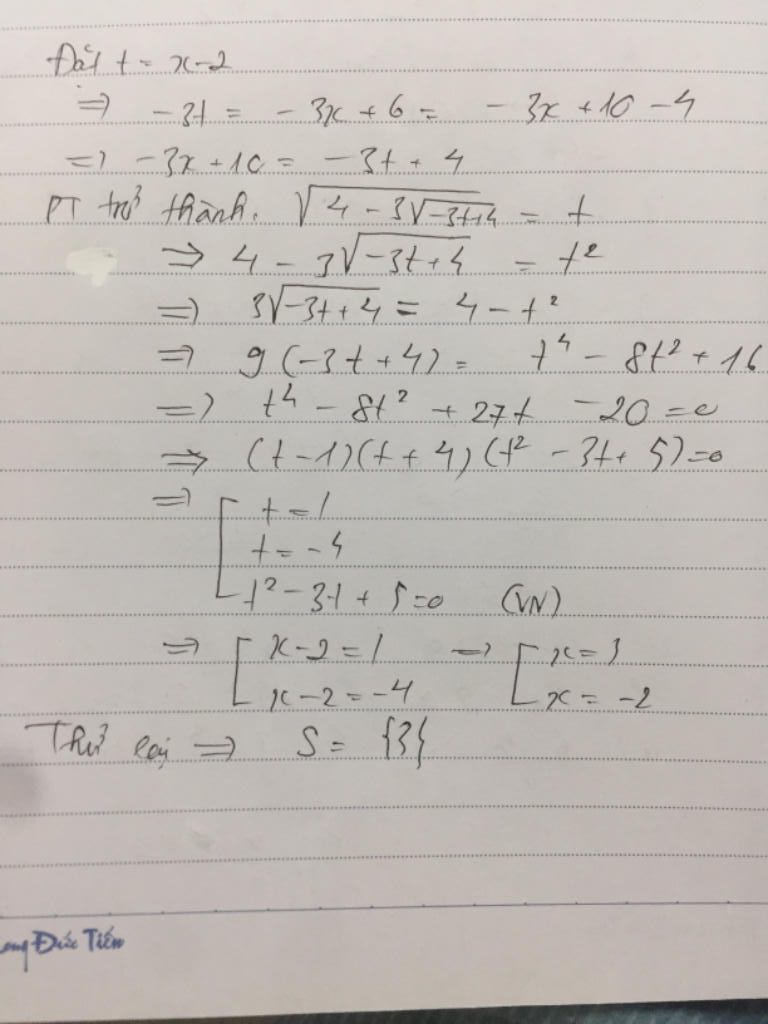 Đặt t = x-2
=> -3t = -3x + 6 = -3x + 10 - 4
=> -3x + 10 = -3t + 4
PT trở thành. √(4 - 3√(-3t+4)) = t
=> 4 - 3√(-3t+4) = t²
=> 3√(-3t+4) = 4 - t²
=> 9(-3t+4) = t⁴ - 8t² + 16
=> t⁴ - 8t² + 27t - 20 = 0
=> (t-1)(t+4)(t² - 3t + 5) = 0
=> [ t = 1
t = -4
t² - 3t + 5 = 0 (VN)
=> [ x-2 = 1 => [ x = 3
x-2 = -4 x = -2
Thử lại => S = {3}
Đức Tiến